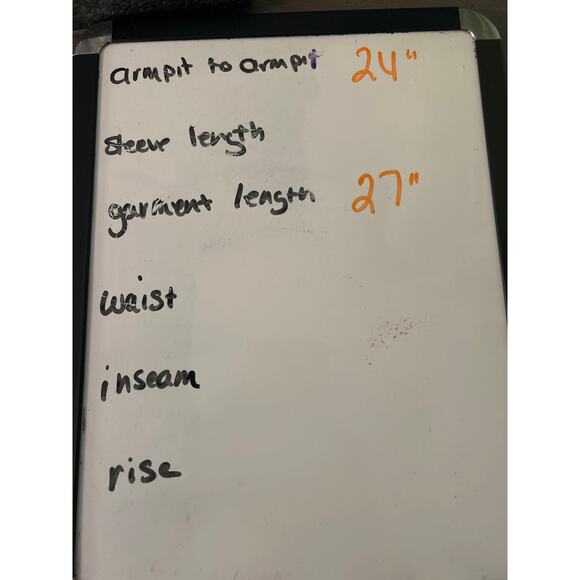 armpit to armpit 24"
sleeve length
garment length 27"
waist
inseam
rise